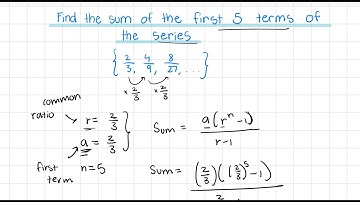 Find the sum of the first 5 terms of
the series
{ 2/3, 4/9, 8/27, ... }
× 2/3 × 2/3
common
ratio
r = 2/3
a = 2/3
first
term
n = 5
Sum = a(rⁿ-1)
r-1
Sum = (2/3)((2/3)⁵-1)